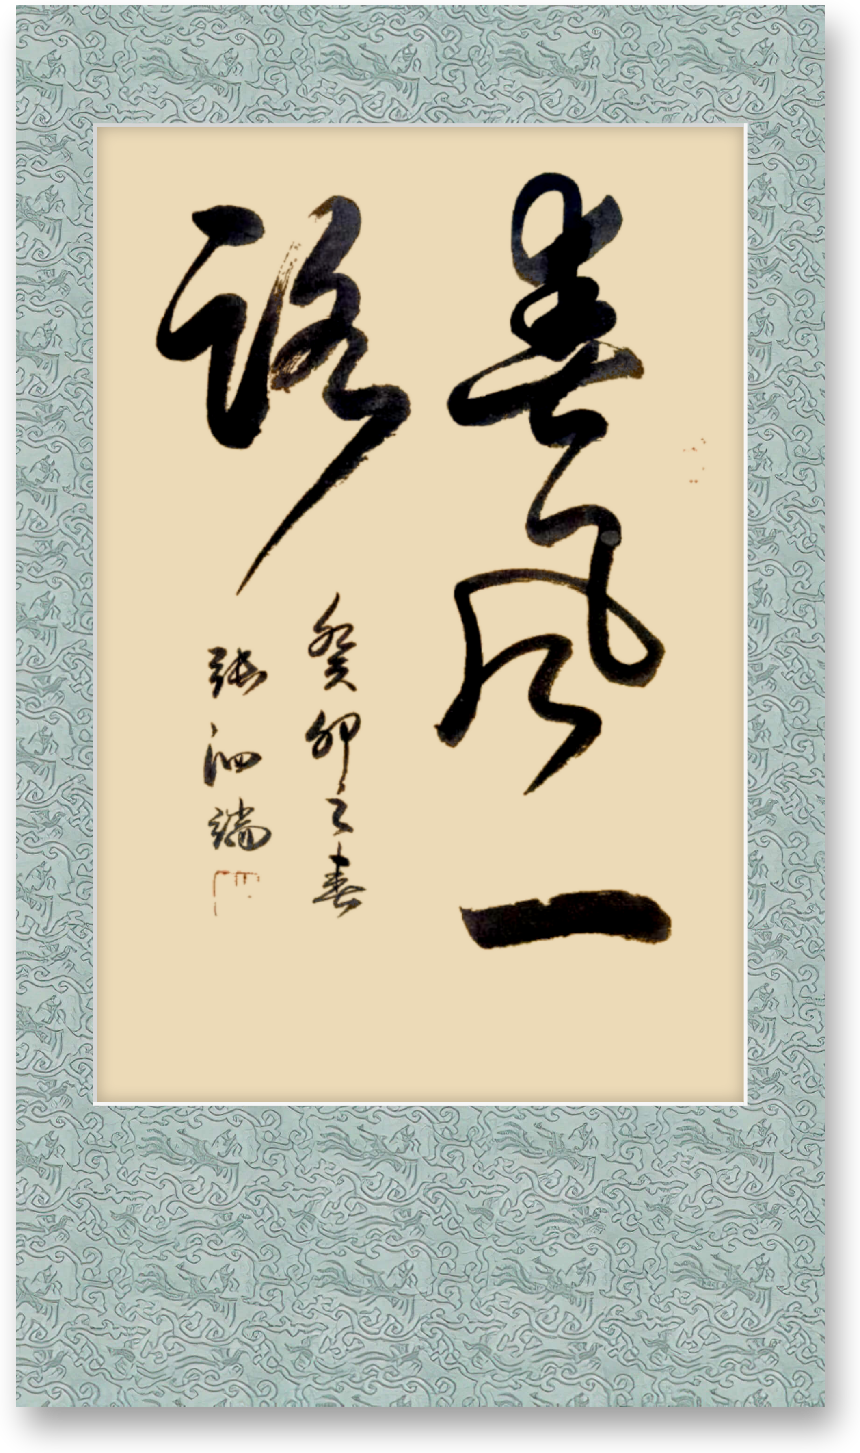 春风一
路
癸卯之春
张泗端